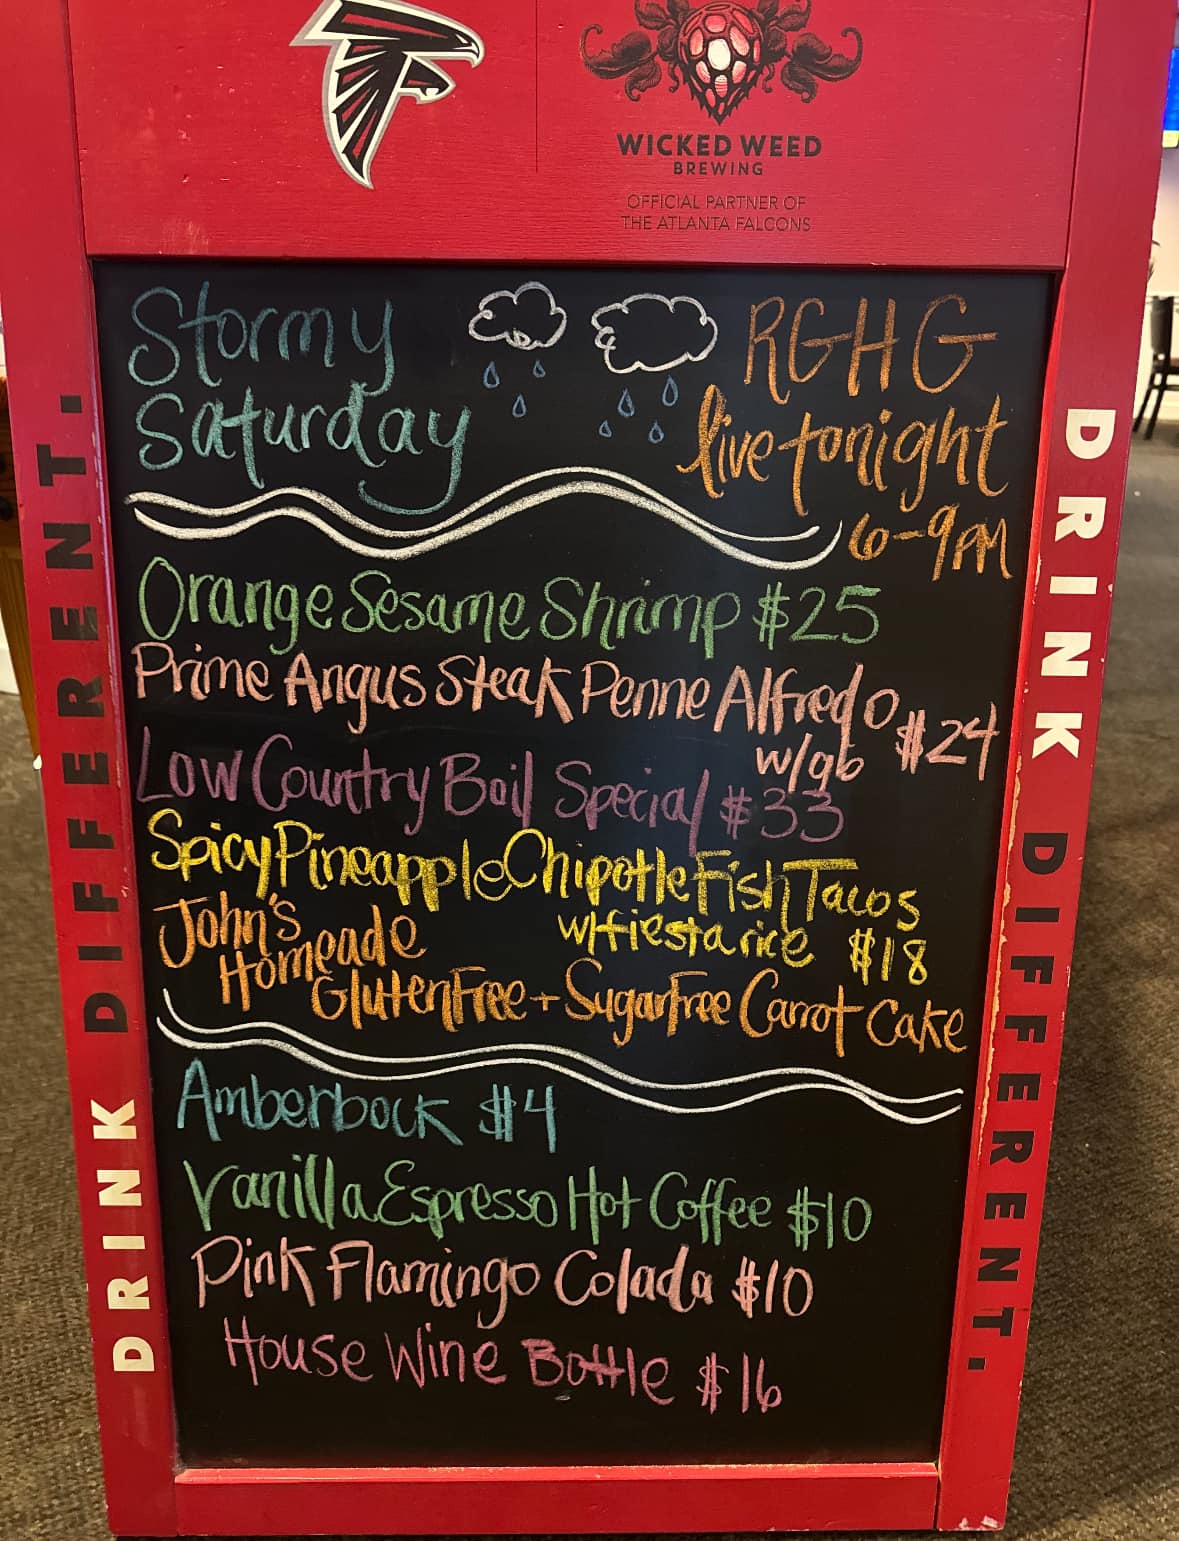 WICKED WEED
BREWING
OFFICIAL PARTNER OF
THE ATLANTA FALCONS
Stormy
Saturday
RGHG
live tonight
6-9PM
Orange Sesame Shrimp $25
Prime Angus Steak Penne Alfredo $24
w/gb
Low Country Boil Special $33
Spicy Pineapple Chipotle Fish Tacos
w/fiesta rice $18
John's
Homeade
GlutenFree + SugarFree Carrot Cake
Amberbock $4
Vanilla Espresso Hot Coffee $10
Pink Flamingo Colada $10
House Wine Bottle $16
DRINK DIFFERENT.
DRINK DIFFERENT.